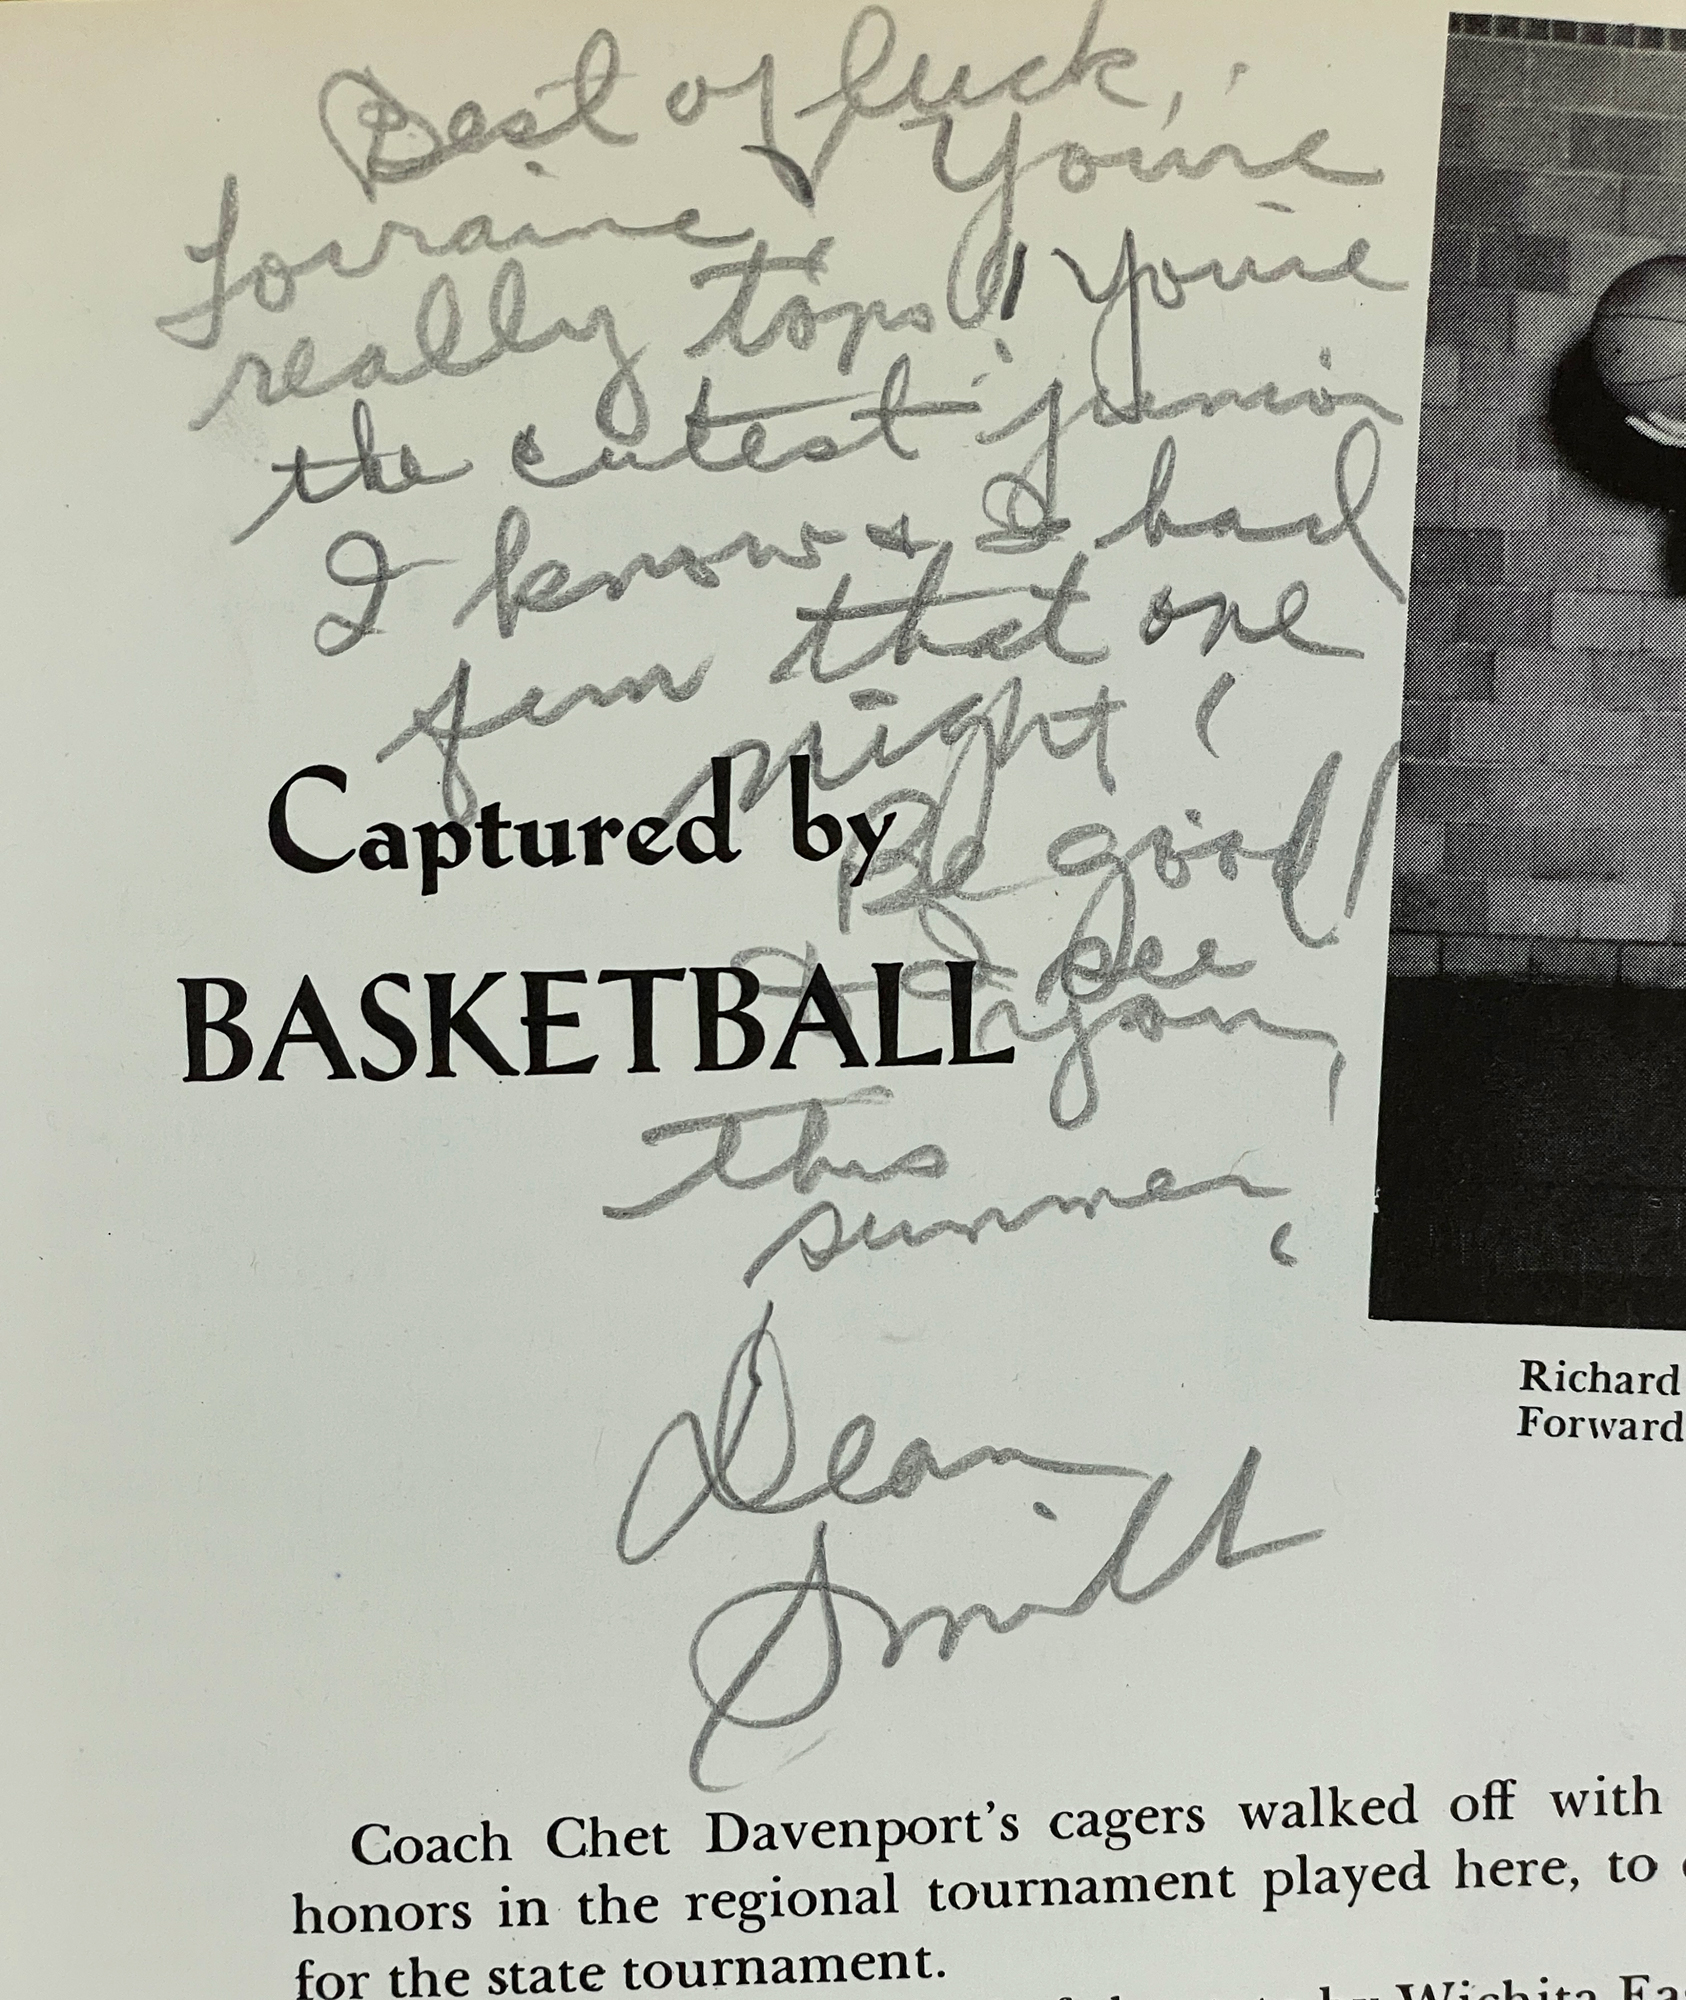 Best of luck,
Lorraine, You're
really tops! You're
the cutest junior
I know & I had
fun that one
night!
Captured by
Be good!
BASKETBALL
See
you
this
summer,
Dean
Smith
Richard
Forward
Coach Chet Davenport's cagers walked off with
honors in the regional tournament played here, to
for the state tournament.
by Wichita Ea